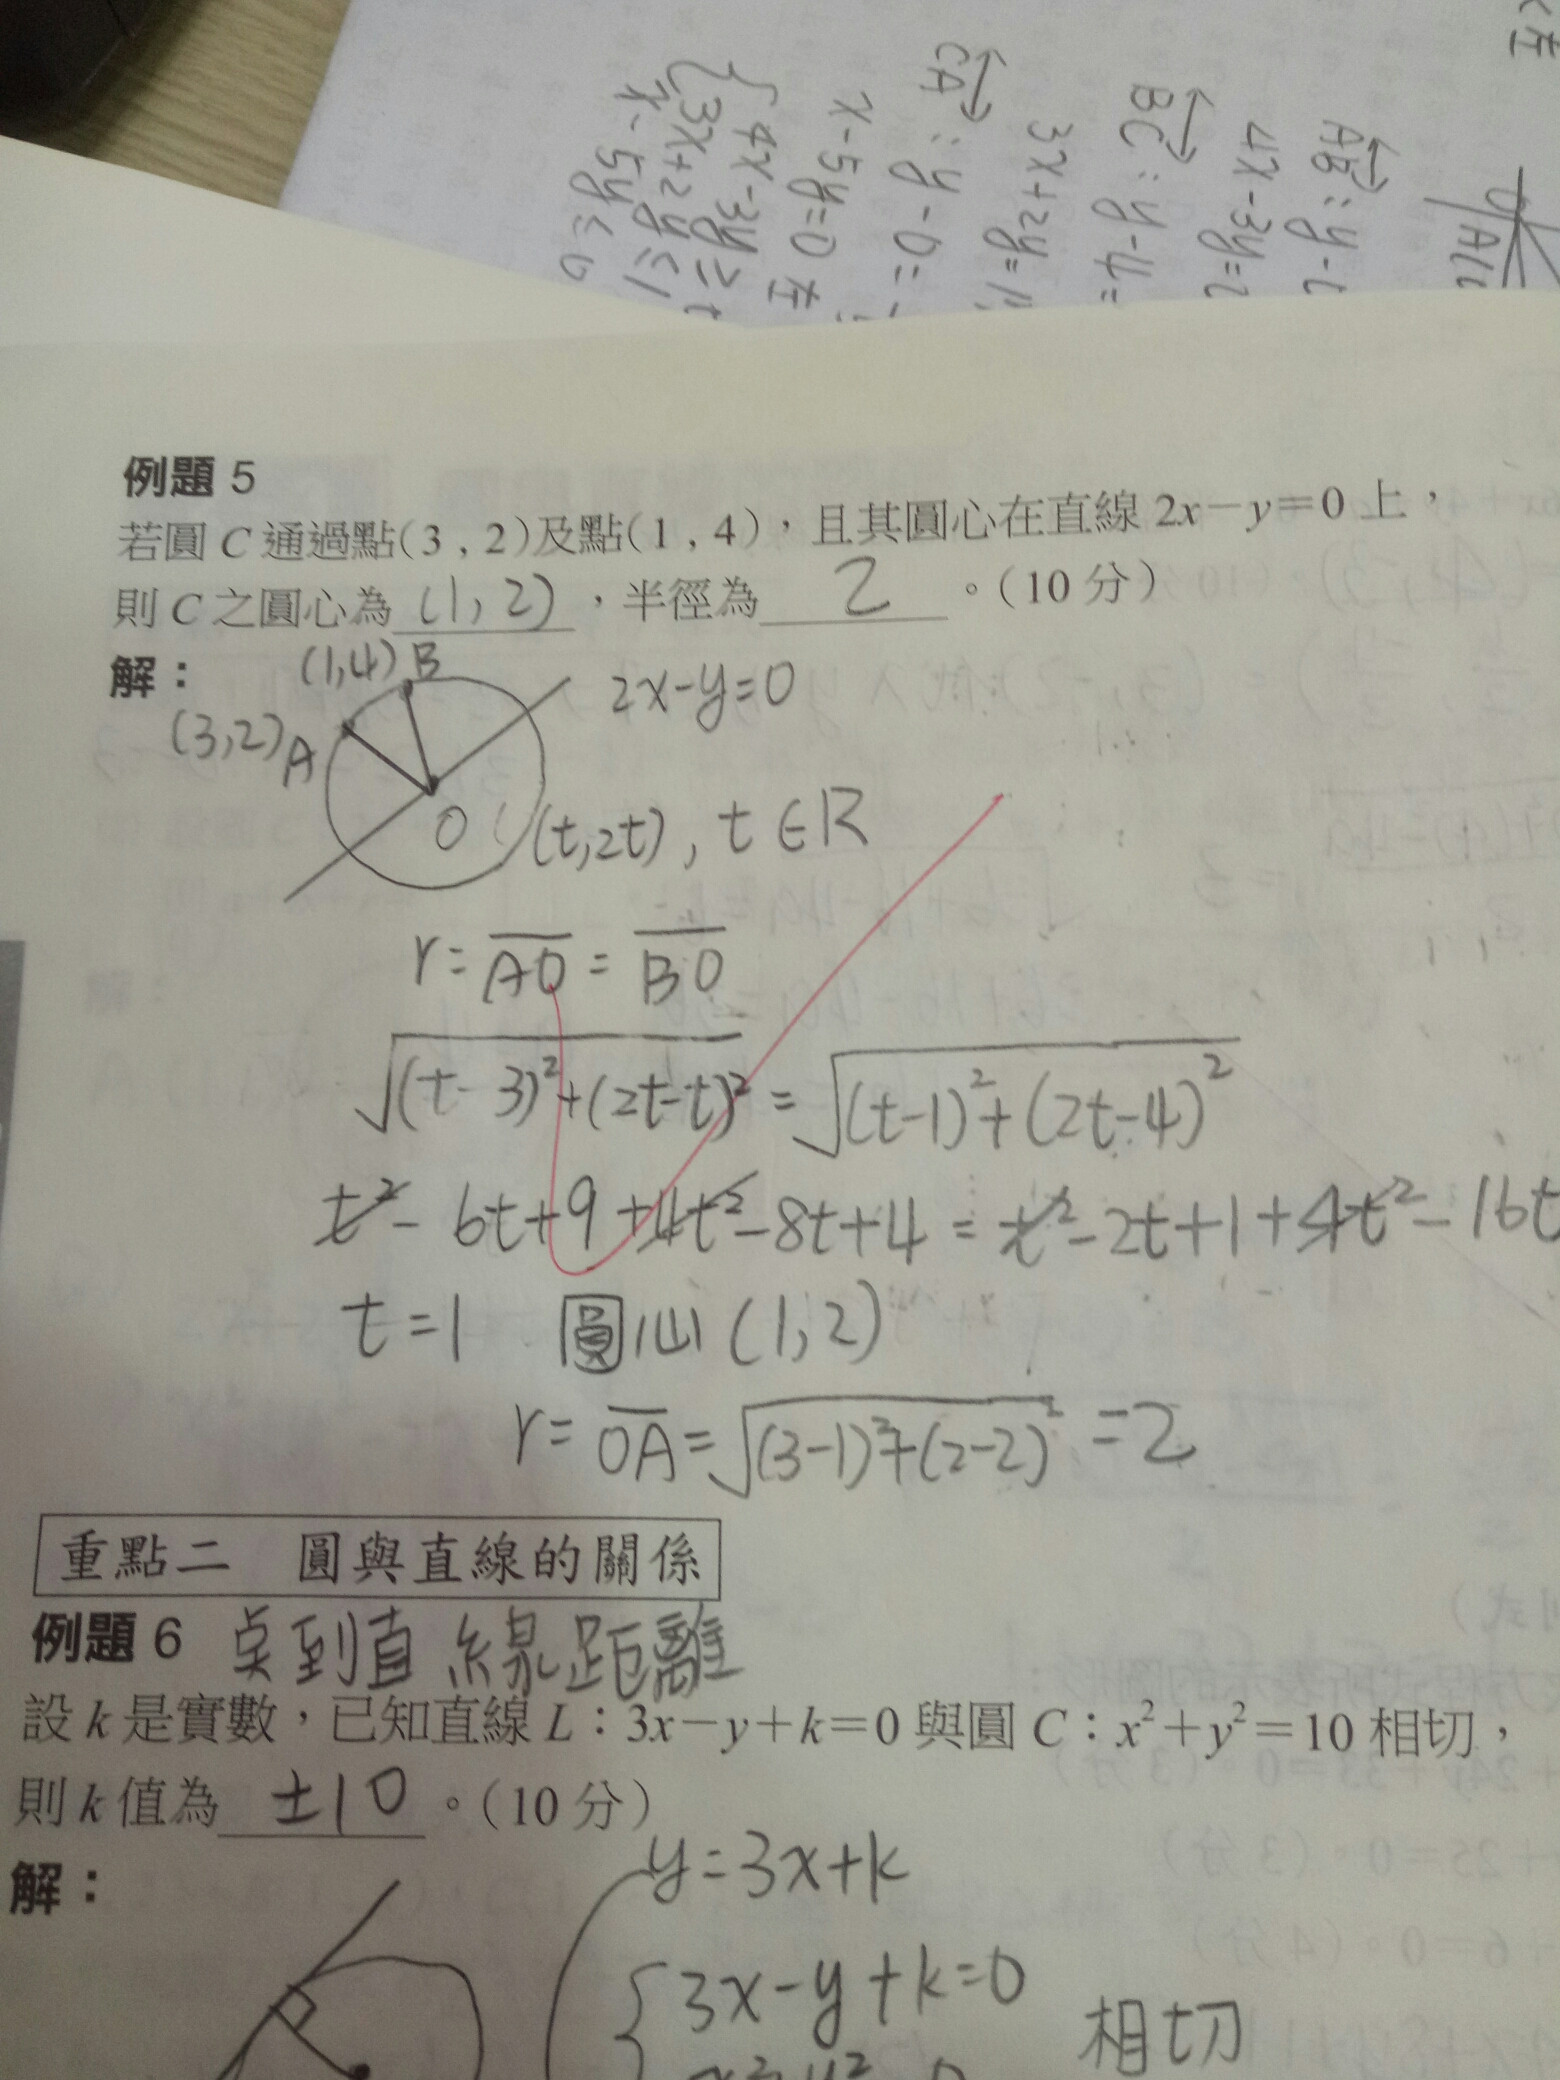 x-5y≤0
3x+2y≤1
4x-3y≥
x-5y=0 在
CA : y-0=-
3x+2y=1
BC : y-4=
4x-3y=
AB : y-
例題 5
若圓 C 通過點(3 , 2)及點(1 , 4)，且其圓心在直線 2x－y＝0 上，
則 C 之圓心為 (1,2) ，半徑為 2 。(10 分)
解：
(1,4) B
2x-y=0
(3,2) A
O (t,2t), t∈R
r=AO=BO
√(t-3)²+(2t-t)² = √(t-1)²+(2t-4)²
t²-6t+9+4t²-8t+4 = t²-2t+1+4t²-16t
t=1 圓心(1,2)
r=OA=√(3-1)²+(2-2)² =2
重點二 圓與直線的關係
例題 6 点到直線距離
設 k 是實數，已知直線 L：3x－y＋k＝0 與圓 C：x²＋y²＝10 相切，
則 k 值為 ±10 。(10 分)
解：
y=3x+k
3x-y+k=0
相切